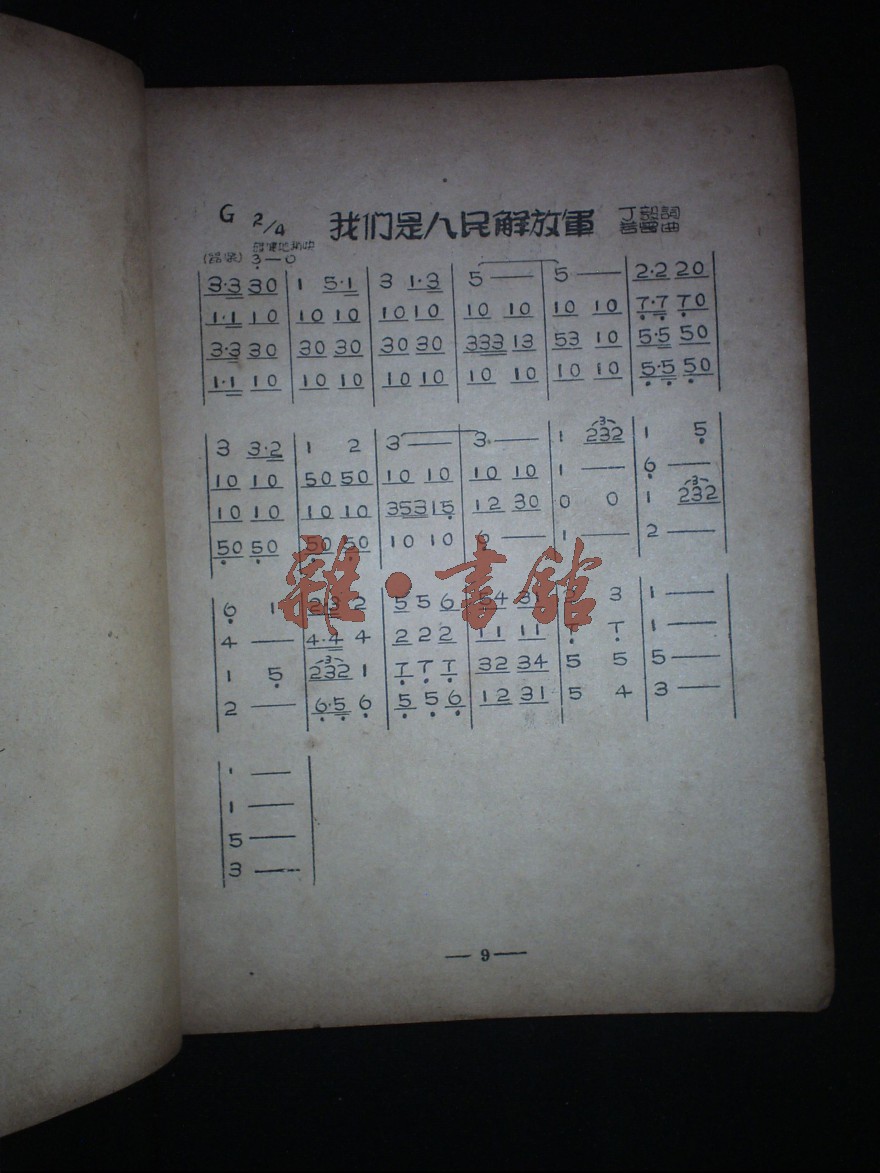 G 2/4 我们是人民解放軍 丁毅詞
曲
3 — 0
3·3 30 | 1 5·1 | 3 1·3 | 5 — | 5 — | 2·2 20
1·1 10 | 10 10 | 10 10 | 10 10 | 10 10 | 7·7 70
3·3 30 | 30 30 | 30 30 | 333 13 | 53 10 | 5·5 50
1·1 10 | 10 10 | 10 10 | 10 10 | 10 10 | 5·5 50
3 3·2 | 1 2 | 3 — | 3 — | 1 232 | 1 5
10 10 | 50 50 | 10 10 | 10 10 | 1 — | 6 —
10 10 | 10 10 | 35315 | 12 30 | 0 0 | 1 232
50 50 | 50 50 | 10 10 | 6 — | 1 — | 2 —
6 1 | 2 | 5 5 6 | 54 3 | 3 | 1 —
4 — | 4·4 4 | 2 2 2 | 11 11 | 7 7 | 1 —
1 5 | 232 1 | 7 7 7 | 32 34 | 5 5 | 5 —
2 — | 6·5 6 | 5 5 6 | 12 31 | 5 4 | 3 —
1 —
1 —
5 —
3 —
雜·書館
— 9 —